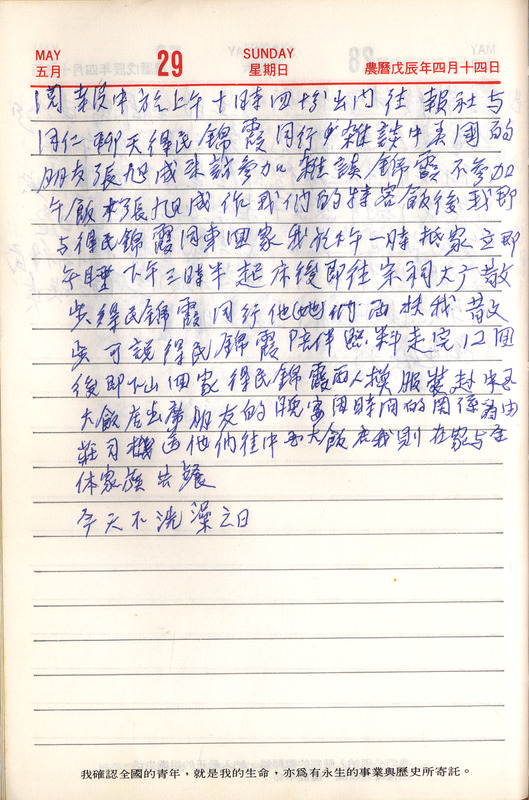 MAY 29 SUNDAY
五月 星期日 農曆戊辰年四月十四日
閱報後中於上午十時四十分出門往報社与
同仁聊天得民錦霞同行雜談中美國的
朋友張旭成來訪參加雜談錦霞不參加
午飯張旭成作我們的特客飯後我即
与得民錦霞同車回家我於下午一時抵家立即
午睡下午三時半起床後即往宗祠大广散
步得民錦霞同行他(她)們扶我散
步可說得民錦霞陪伴照料走完12回
後即下山回家得民錦霞兩人換服裝赴中
大飯店出席朋友的晚宴因時間的関係由
莊司機送他們往中大飯店我則在家与全
体家族共餐
今天不洗澡之日
我確認全國的青年,就是我的生命,亦為有永生的事業與歷史所寄託。